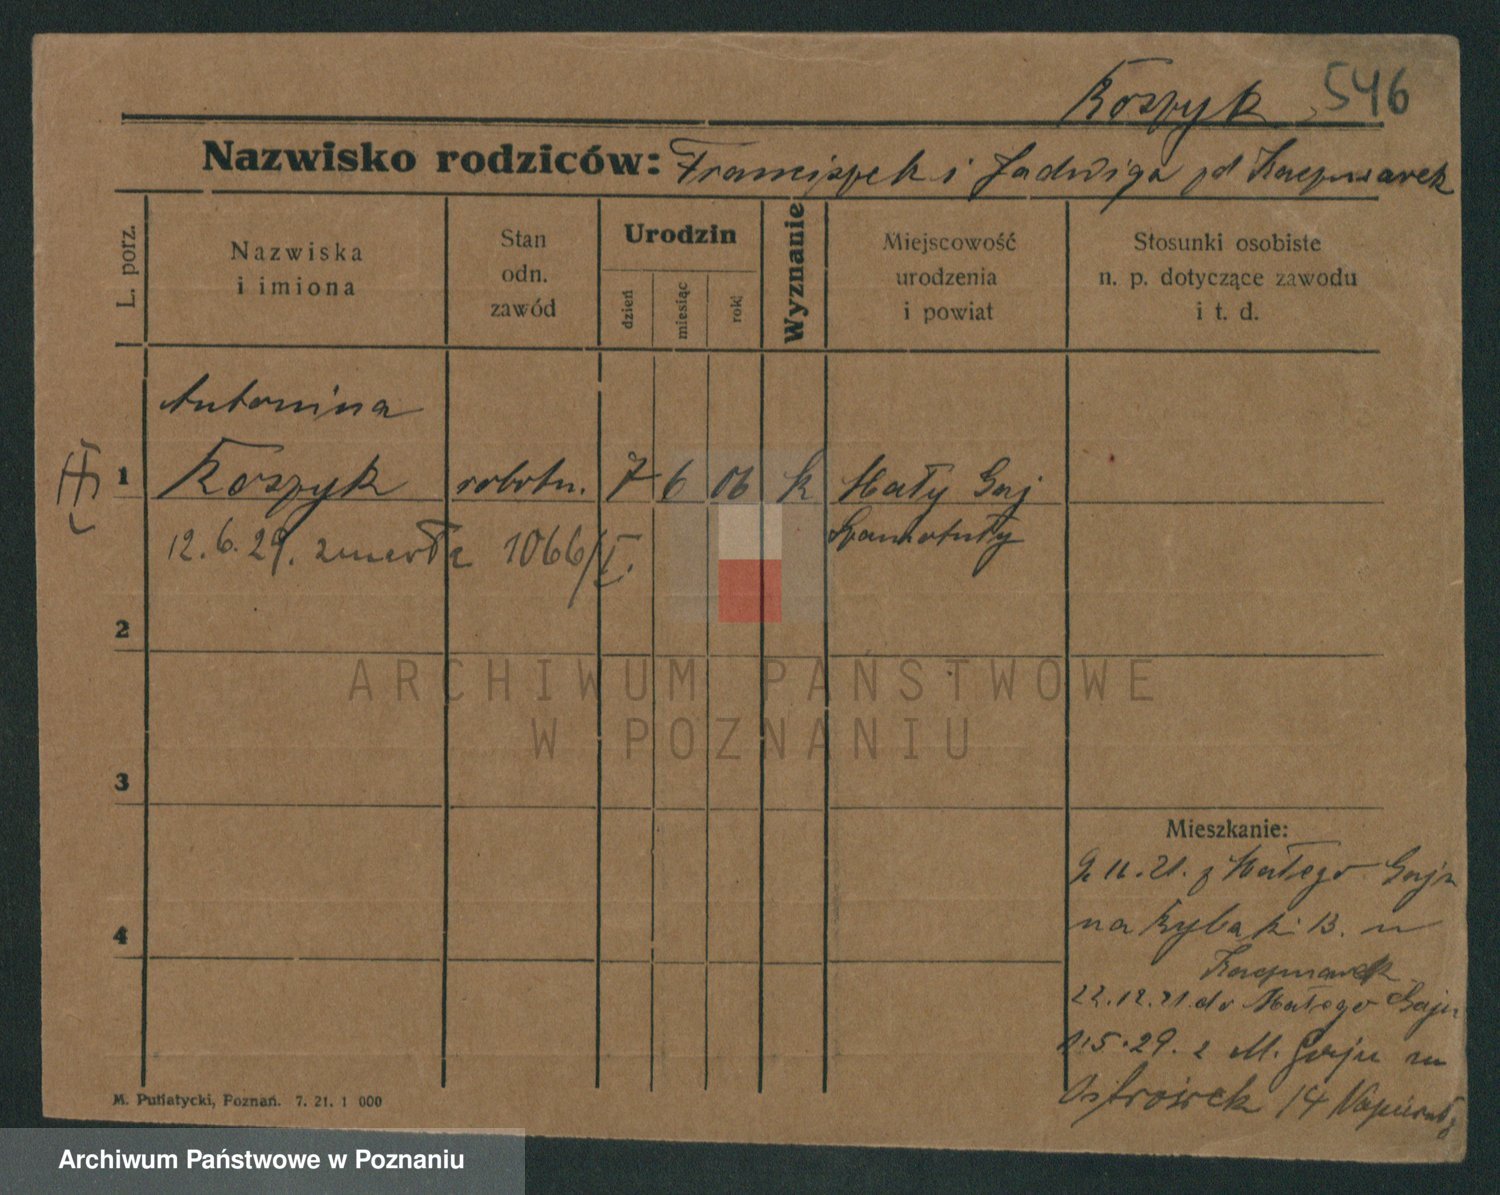 Koszyk 546
Nazwisko rodziców: Franciszek i Jadwiga zd Kaczmarek
L. porz.
Nazwiska
i imiona
Stan
odn.
zawód
Urodzin
dzień
miesiąc
rok
Wyznanie
Miejscowość
urodzenia
i powiat
Stosunki osobiste
n. p. dotyczące zawodu
i t. d.
Antonina
1 Koszyk robotn. 7 6 06 k Mały Gaj
Szamotuły
12.6.29. zmarła 1066/I.
2
ARCHIWUM PAŃSTWOWE
W POZNANIU
3
Mieszkanie:
9.11.21. z Małego Gaju
na Rybaki 13. u
4
Kaczmarek
22.12.21. do Małego Gaju
5.29. z M. Gaju na
Ostrówek 14
M. Putiatycki, Poznań. 7. 21. 1 000
Archiwum Państwowe w Poznaniu